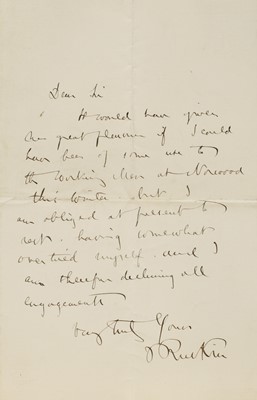 Dear Sir
It would have given
me great pleasure if I could
have been of some use to
the Working Men at Norwood
this winter. but I
am obliged at present to
rest. having somewhat
overtired myself. and I
am therefore declining all
engagements
Very truly Yours
J Ruskin